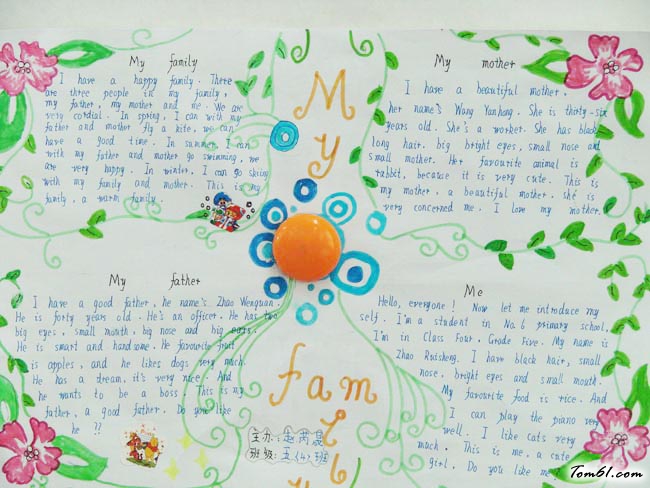 My family
I have a happy family. There
are three people in my family,
my father, my mother and me. We are
very cordial. In spring, I can with my
father and mother fly a kite, we can
have a good time. In summer, I can
with my father and mother go swimming, we
are very happy. In winter, I can go skiing
with my family and mother. This is my
family, a warm family.
My mother
I have a beautiful mother,
her name's Wang Yanhong. She is thirty-six
years old. She's a worker. She has black
long hair, big bright eyes, small nose and
small mother. Her favourite animal is
rabbit, because it is very cute. This is
my mother, a beautiful mother, she is
very concerned me. I love my mother.
My
family
My father
I have a good father, he name's Zhao Wenquan.
He is forty years old. He's an officer. He has two
big eyes, small mouth, big nose and big ears.
He is smart and handsome. He favourite fruit
is apples, and he likes dogs very much.
He has a dream, it's very nice. And
he wants to be a boss. This is my
father, a good father. Do you like
he ??
Me
Hello, everyone! Now let me introduce my
self. I'm a student in No.6 primary school,
I'm in Class Four, Grade Five. My name is
Zhao Ruisheng. I have black hair, small
nose, bright eyes and small mouth.
My favourite food is rice. And
I can play the piano very
well. I like cats very
much. This is me, a cute
girl. Do you like me?
主办:赵芮晟
班级:五(4)班
Tom61.com